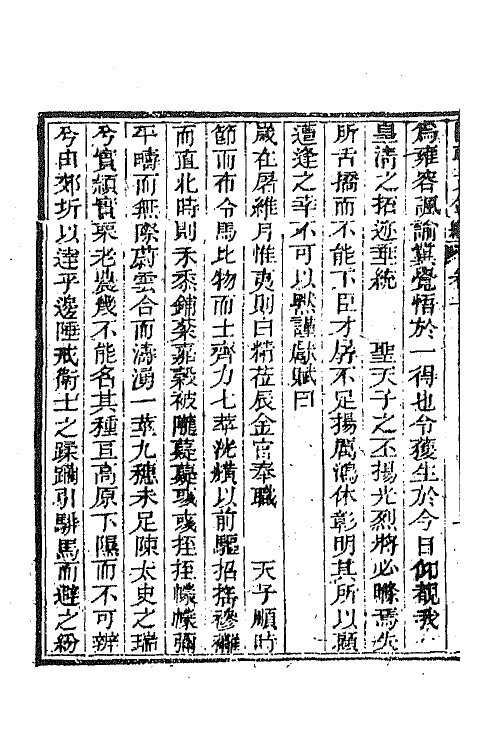 爲雍容諷諭冀覺悟於一得也令獲生於今日仰覩我
皇淸之拓迹垂統 聖天子之丕揚光烈將必瞭焉失
所舌撟而不能下臣才孱不足揚厲鴻休彰明其所以願
遭逢之幸不可以默謹獻賦曰
歲在屠維月惟夷則日精莅辰金官奉職 天子順時
節而布令馬比物而士齊力七萃洸橫以前驅招搖穆離
而直北時則禾黍鋪棻嘉穀被隴薿薿彧彧挃挃幪幪彌
平疇而無際蔚雲合而濤湧一莖九穗未足陳太史之瑞
兮實穎實栗老農幾不能名其種亘高原下隰而不可辨
兮由郊圻以達乎邊陲戒衛士之蹂躪引駢馬而避之紛